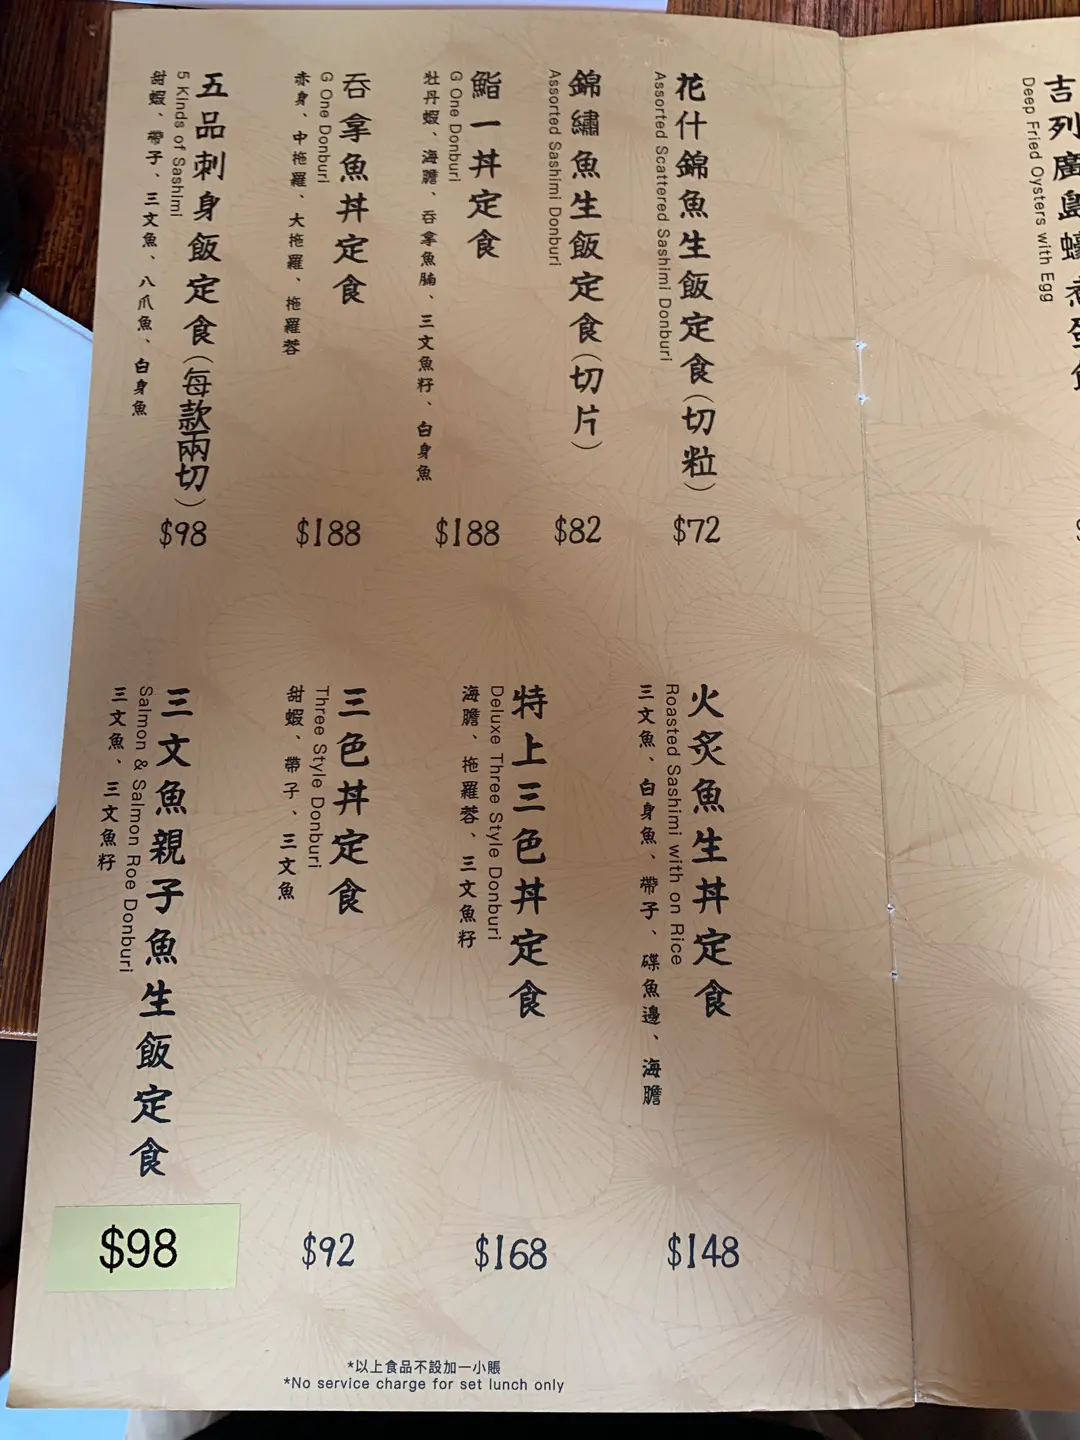 吉列廣島蠔煮蛋飯
Deep Fried Oysters with Egg
花什錦魚生飯定食(切粒)
Assorted Scattered Sashimi Donburi
$72
錦繡魚生飯定食(切片)
Assorted Sashimi Donburi
$82
鮨一丼定食
G One Donburi
牡丹蝦、海膽、吞拿魚腩、三文魚籽、白身魚
$188
吞拿魚丼定食
G One Donburi
赤身、中拖羅、大拖羅、拖羅蓉
$188
五品刺身飯定食(每款兩切)
5 Kinds of Sashimi
甜蝦、帶子、三文魚、八爪魚、白身魚
$98
火炙魚生丼定食
Roasted Sashimi with on Rice
三文魚、白身魚、帶子、碟魚邊、海膽
$148
特上三色丼定食
Deluxe Three Style Donburi
海膽、拖羅蓉、三文魚籽
$168
三色丼定食
Three Style Donburi
甜蝦、帶子、三文魚
$92
三文魚親子魚生飯定食
Salmon & Salmon Roe Donburi
三文魚、三文魚籽
$98
*以上食品不設加一小賬
*No service charge for set lunch only